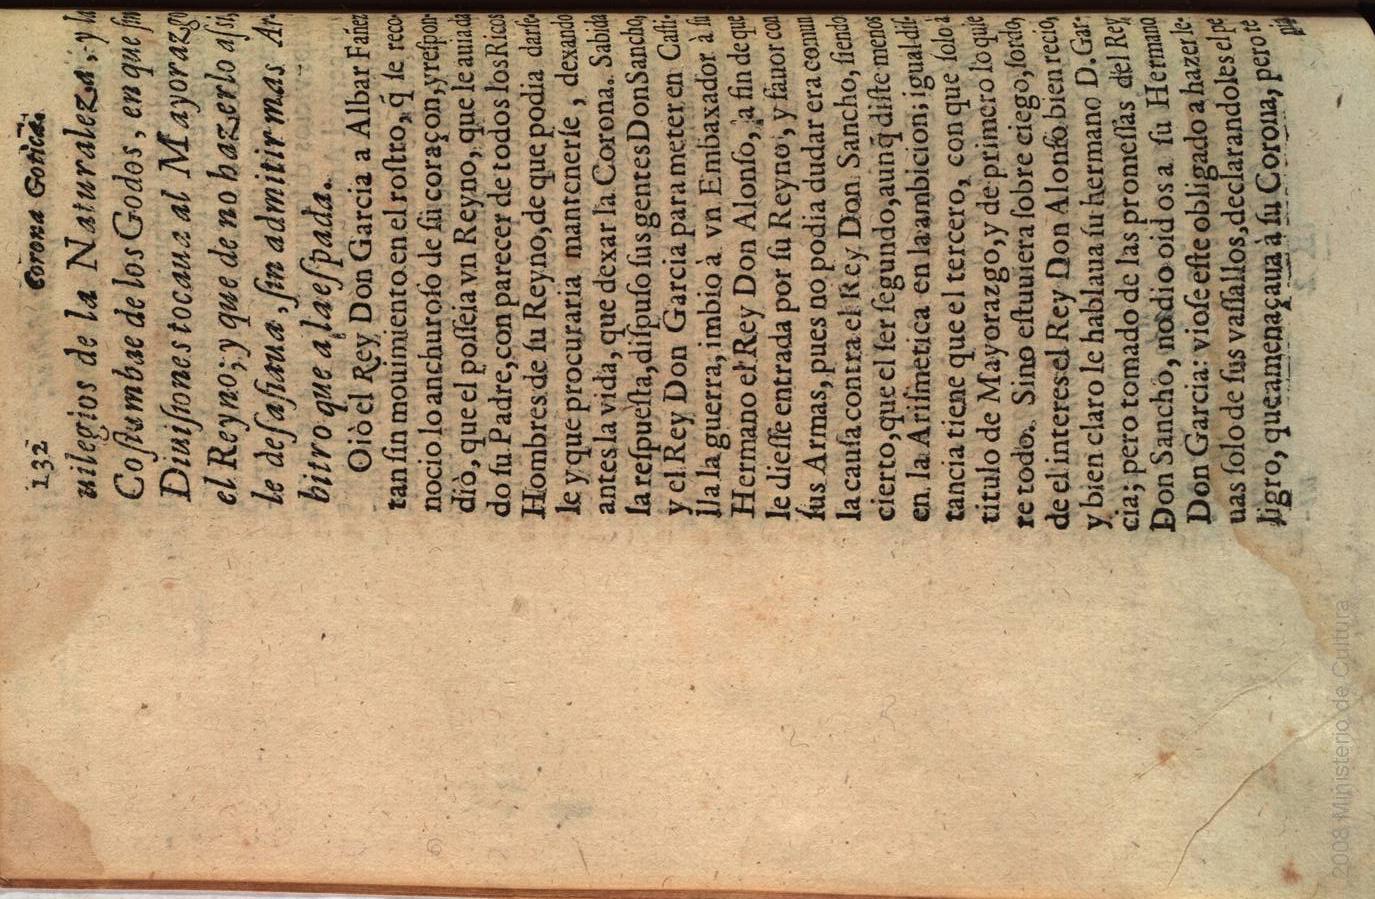 132 Corona Gotica.
uilegios de la Naturaleza, y la
Coſtumbae de los Godos, en que ſin
Diuiſiones tocaua al Mayorazgo
el Reyno; y que de no hazerlo aſsi,
le deſafiaua, ſin admitir mas Ar-
bitro que a la eſpada.
Oiò el Rey Don Garcia a Albar Fañez
tan ſin mouimiento en el roſtro, q̃ le reco-
nocio lo anchuroſo de ſu coraçon, y reſpon-
diò, que el poſſeia vn Reyno, que le auia da
do ſu Padre, con parecer de todos los Ricos
Hombres de ſu Reyno, de que podia darſe-
le y que procuraria mantenerſe, dexando
antes la vida, que dexar la Corona. Sabida
la reſpueſta, diſpuſo ſus gentes Don Sancho,
y el Rey Don Garcia para meter en Caſti-
lla la guerra, imbiò à vn Embaxador à ſu
Hermano el Rey Don Alonſo, a fin de que
le dieſſe entrada por ſu Reyno, y fauor con
ſus Armas, pues no podia dudar era comun
la cauſa contra el Rey Don Sancho, ſiendo
cierto, que el ſer ſegundo, aunq̃ diſte menos
en la Ariſmetica en la ambicion; igual diſ-
tancia tiene que el tercero, con que ſolo à
titulo de Mayorazgo, y de primero lo quie
re todo. Sino eſtuuiera ſobre ciego, ſordo,
de el interes el Rey Don Alonſo bien recio,
y bien claro le hablaua ſu hermano D. Gar-
cia; pero tomado de las promeſſas del Rey
Don Sancho, no dio oidos a ſu Hermano
Don Garcia: vioſe eſte obligado a hazer le-
uas ſolo de ſus vaſſallos, declarandoles el pe
ligro, que amenaçaua à ſu Corona, pero te
2008 Ministerio de Cultura